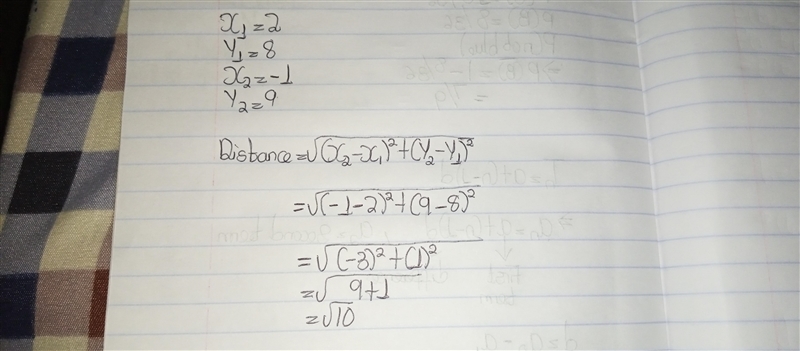 x₁=2
Y₁=8
x₂=-1
Y₂=9
Distance=√(x₂-x₁)²+(Y₂-Y₁)²
=√(-1-2)²+(9-8)²
=√(-3)²+(1)²
=√9+1
=√10